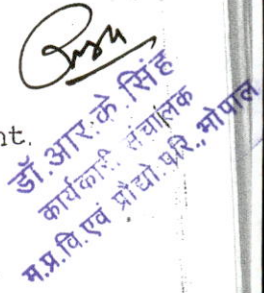 nt.
डॉ. आर. के. सिंह
कार्यकारी संचालक
म.प्र.वि.एवं प्रौद्यो.परि., भोपाल